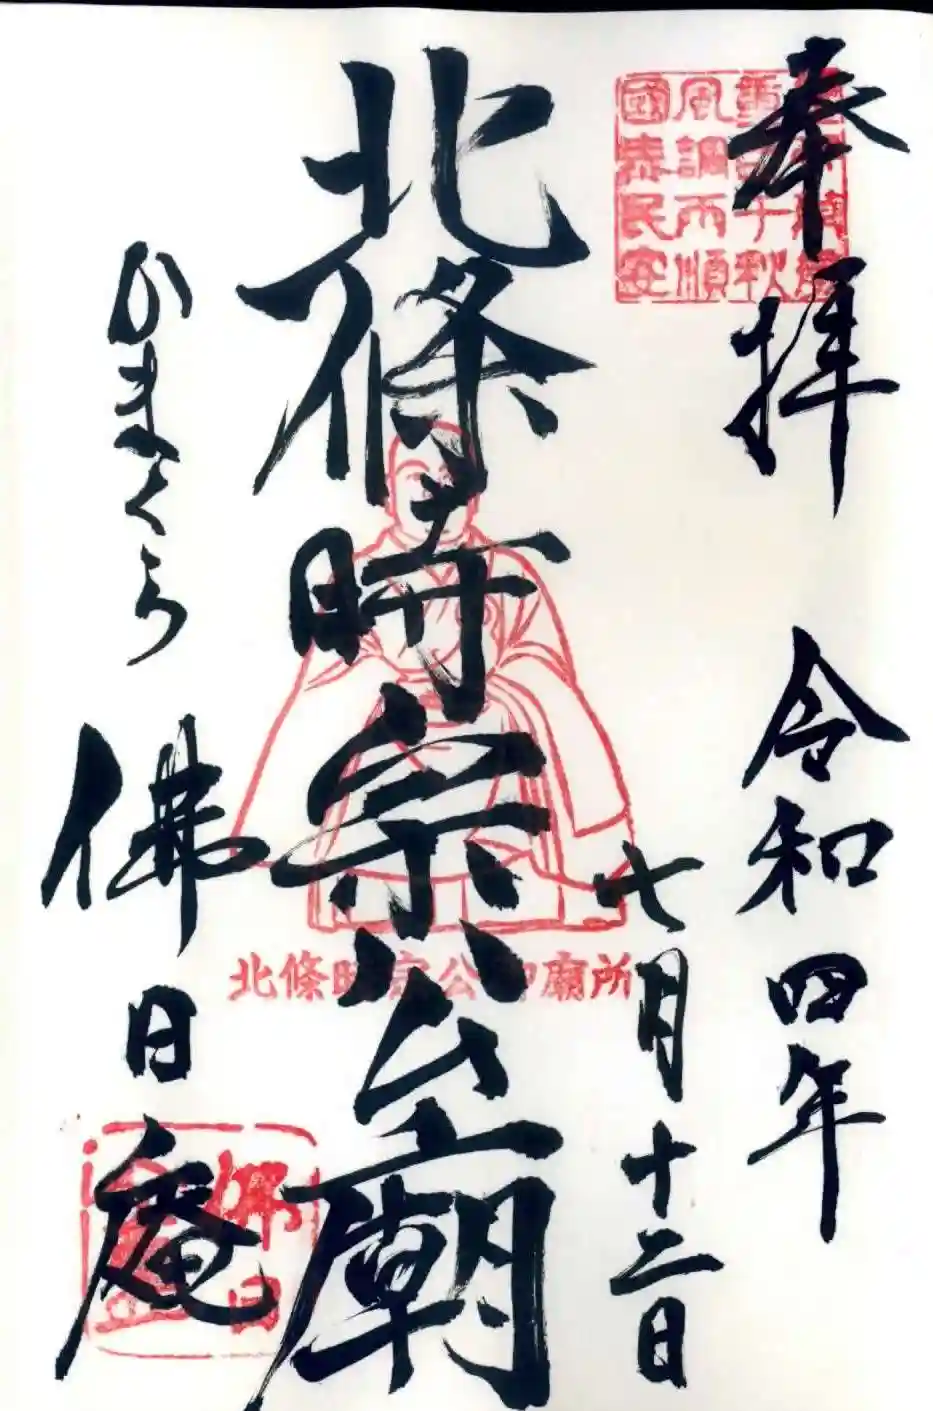 奉拝 令和四年
七月十二日
北條時宗公廟
かまくら 佛日庵
風調雨順
國泰民安
北條時宗公御廟所